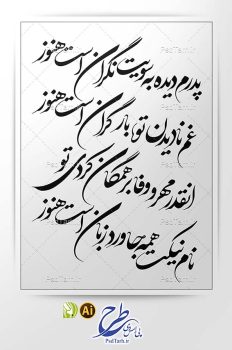 پدرم دیده به سویت نگران است هنوز
غم نادیدن تو بار گران است هنوز
آنقدر مهر و وفا بر همگان کردی تو
نام نیکت همه جا ورد زبان است هنوز
Ai
طرح
PadTarh.ir